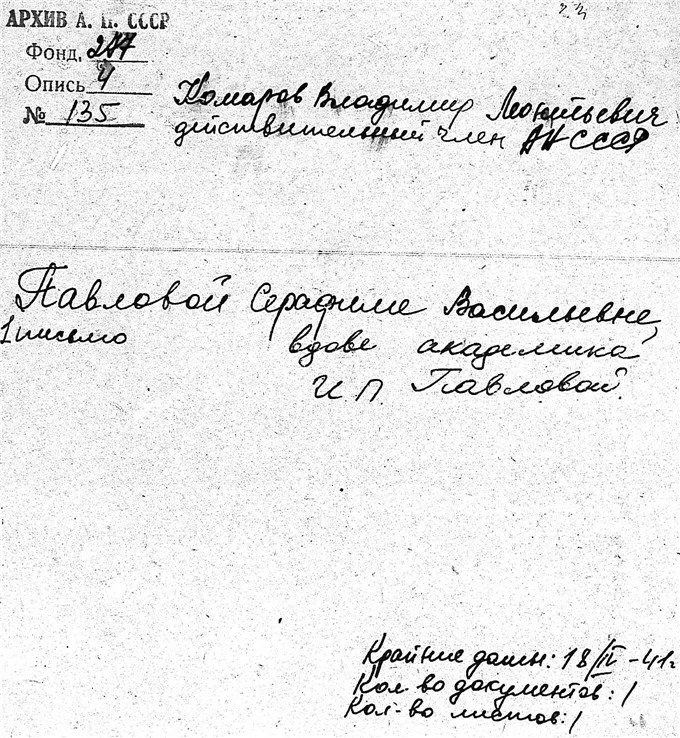 АРХИВ А. Н. СССР
Фонд. 287
Опись 4
№ 135
Комаров Владимир Леонтьевич
действительный член АН СССР
Павловой Серафиме Васильевне,
1 письмо вдове академика
И.П. Павловой.
Крайние даты: 18/IV-41г
Кол-во документов: 1
Кол-во листов: 1